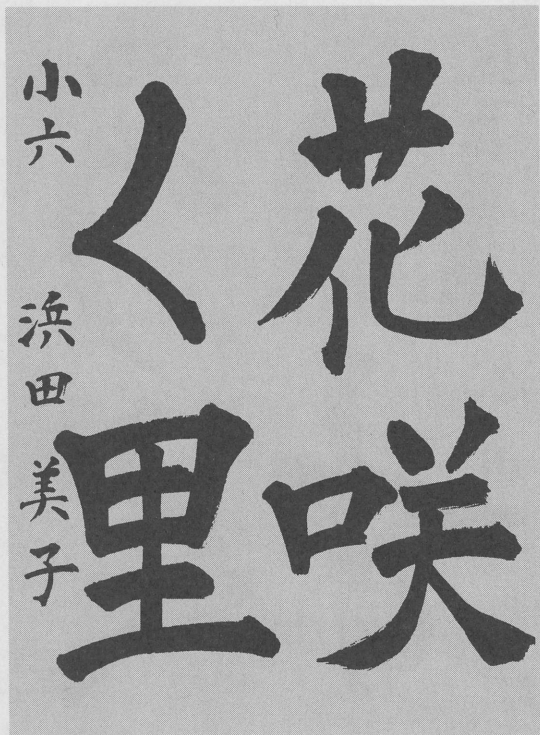 花咲
く里
小六 浜田美子